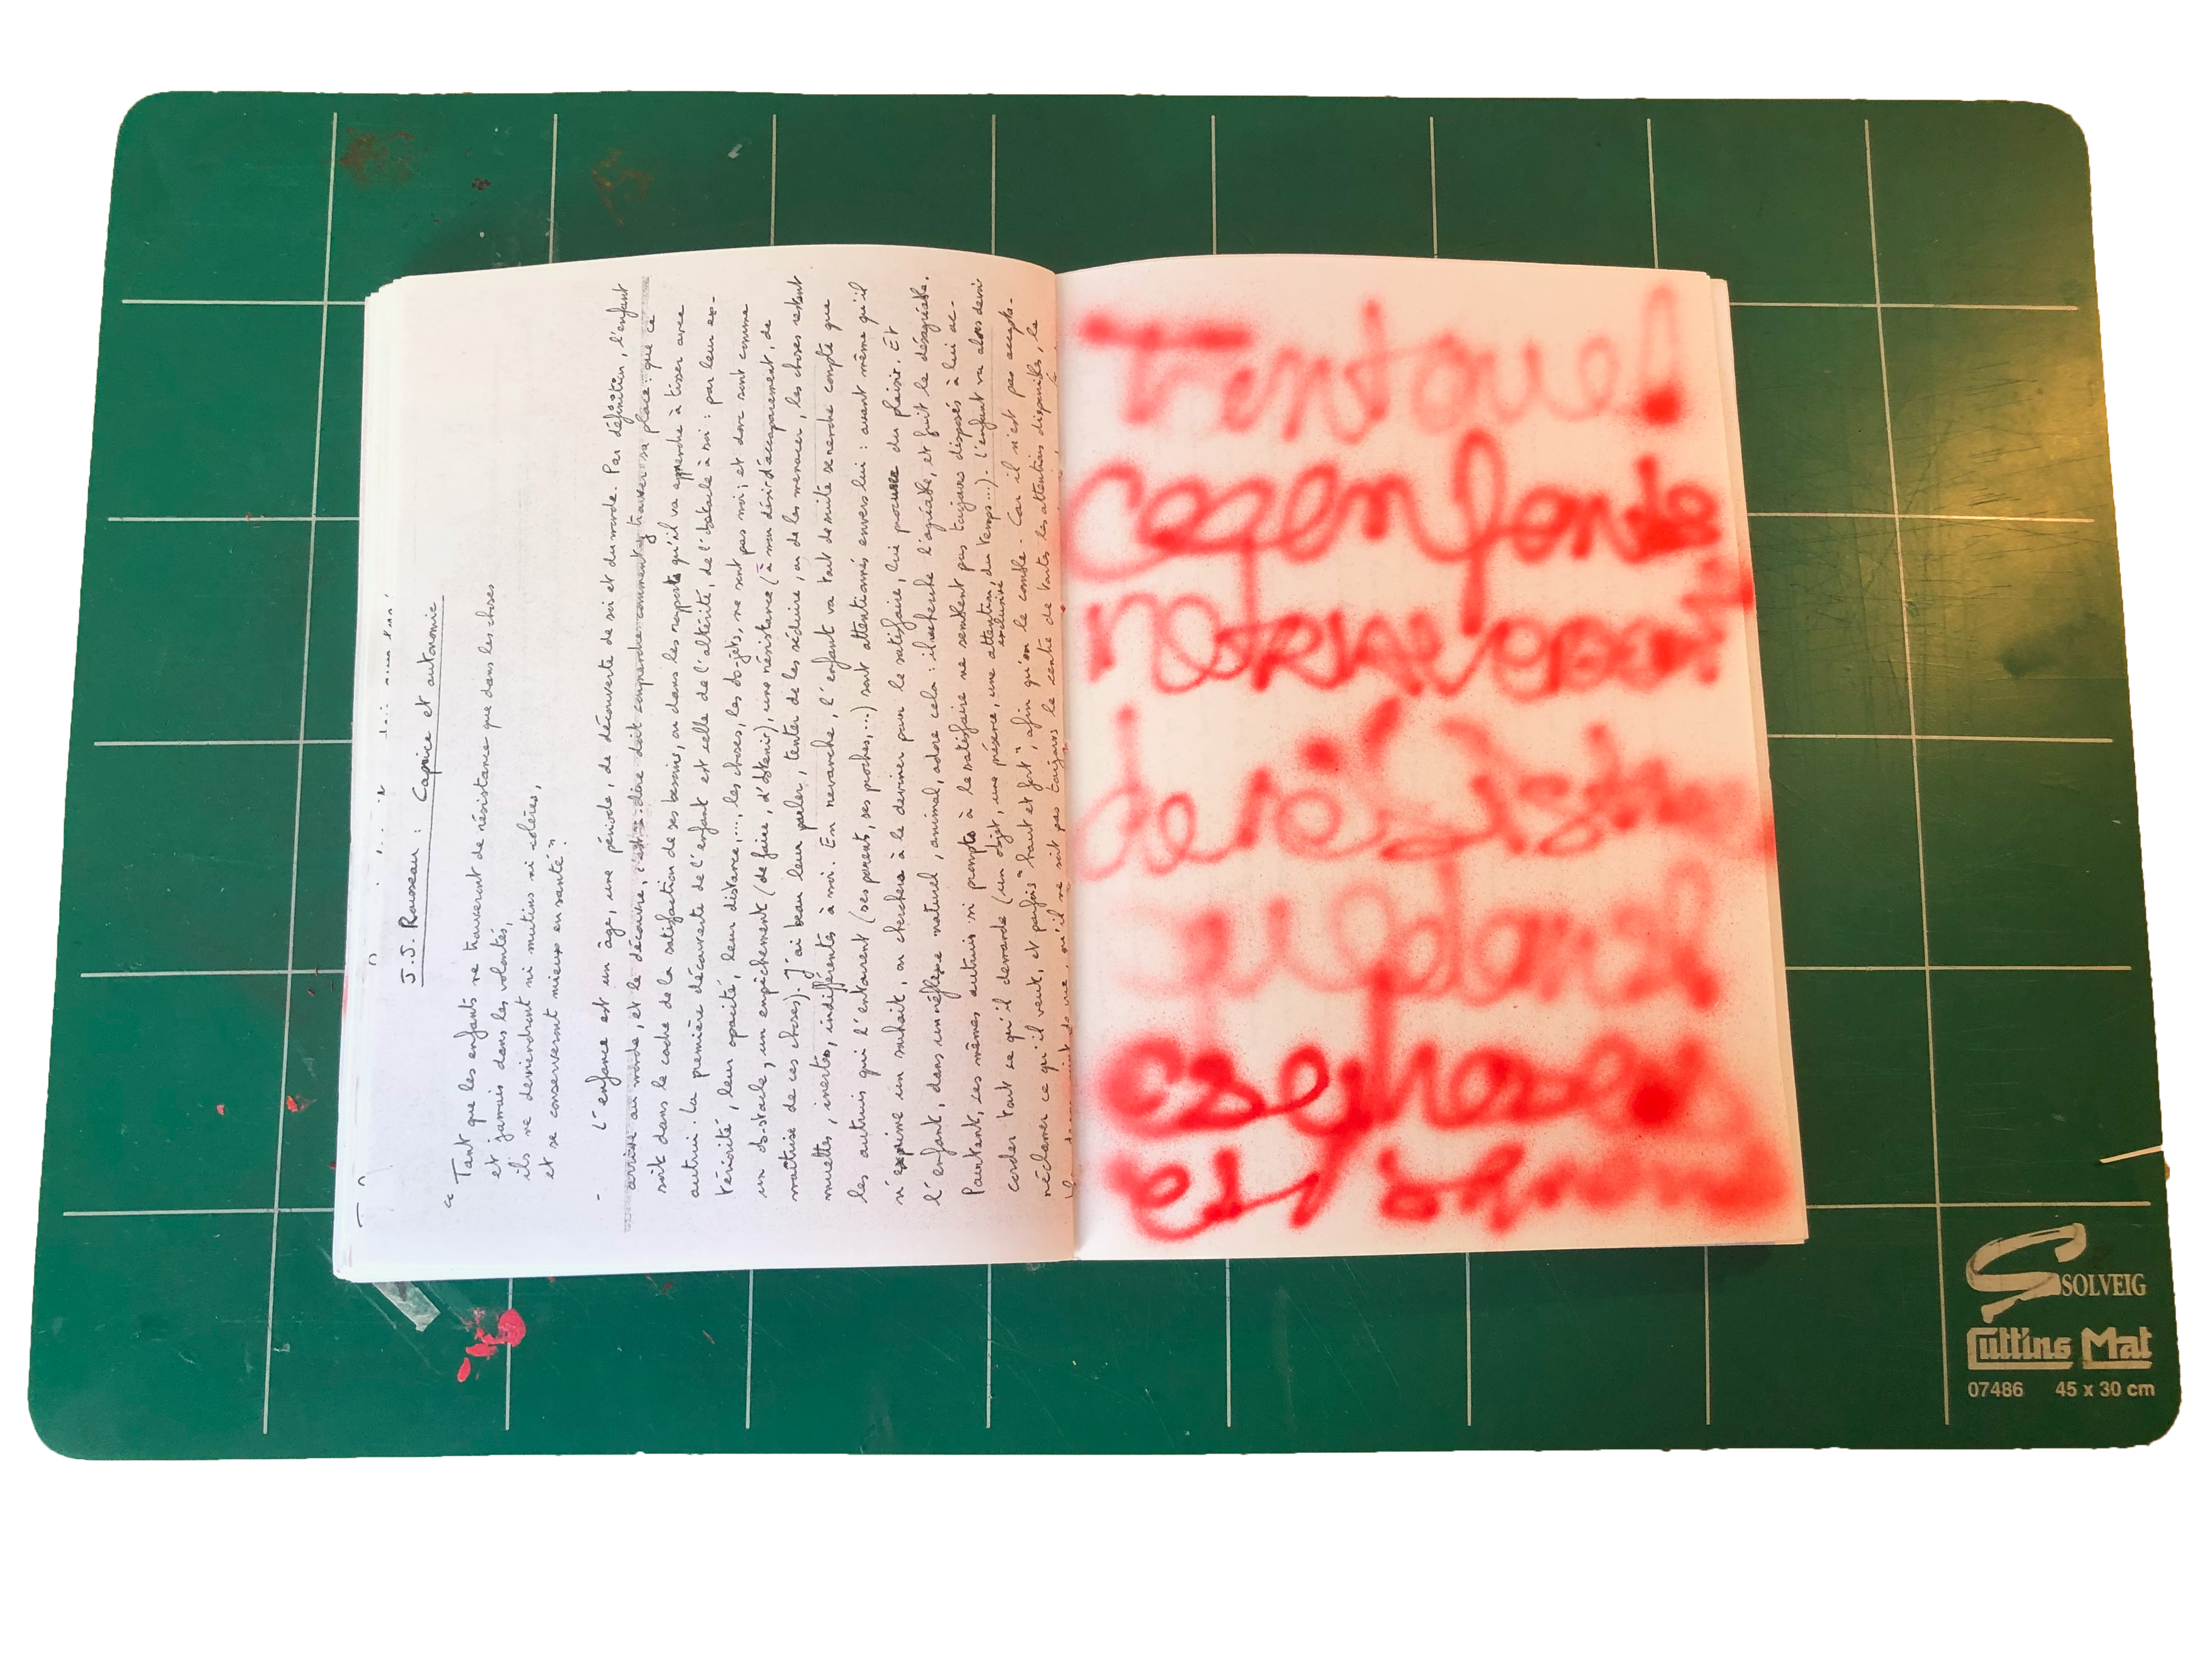 J.J. Rousseau : Caprice et autonomie
"Tant que les enfants ne trouveront de résistance que dans les choses
et jamais dans les volontés,
ils ne deviendront ni mutins ni colères,
et se conserveront mieux en santé"
- L'enfance est un âge, une période, de découverte de soi et du monde. Par définition, l'enfant
arrive au monde, et le découvre, c'est-à-dire doit comprendre comment y trouver sa place : que ce
soit dans le cadre de la satisfaction de ses besoins, ou dans les rapports qu'il va apprendre à tisser avec
autrui. La première découverte de l'enfant est celle de l'altérité, de l'obstacle à soi : par leur ex-
tériorité, leur opacité, leur distance,..., les choses, les ob-jets, ne sont pas moi, et donc sont comme
un ob-stacle, un empêchement (de faire, d'obtenir), une résistance (à mon désir d'accaparement, de
maîtrise de ces choses). J'ai beau leur parler, tenter de les séduire, ou de les menacer, les choses restent
muettes, inertes, indifférentes à moi. En revanche, l'enfant va tout de suite se rendre compte que
les autruis qui l'entourent (ses parents, ses proches,...) sont attentionnés envers lui : avant même qu'il
n'exprime un souhait, on cherchera à le deviner pour le satisfaire, lui procurer du plaisir. Et
l'enfant, dans un réflexe naturel, animal, adore cela : il recherche l'agréable, et fuit le désagréable.
Pourtant, ces mêmes autruis si prompts à le satisfaire ne semblent pas toujours disposés à lui ac-
corder tout ce qu'il demande (un objet, une présence, une attention, du temps...). L'enfant va alors devoir
exclusivité
réclamer ce qu'il veut, et parfois "haut et fort", afin qu'on le comble. Car il n'est pas accepta-
qu'il ne soit pas toujours le centre de toutes les attentions disponibles, le
Tant que l
es enfants
ne trouveront
de résistan
que dans l
es choses
et
SOLVEIG
Cutting Mat
07486 45 x 30 cm